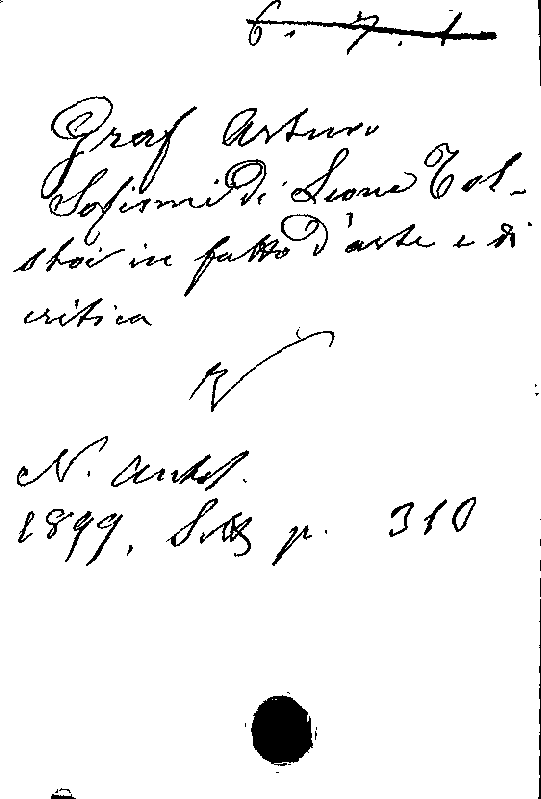 6. 7. 1
Graf Arturo
Sofismi di Leone Tol-
stoi in fatto d'arte e di
critica
N. Antol.
1899, p. 310